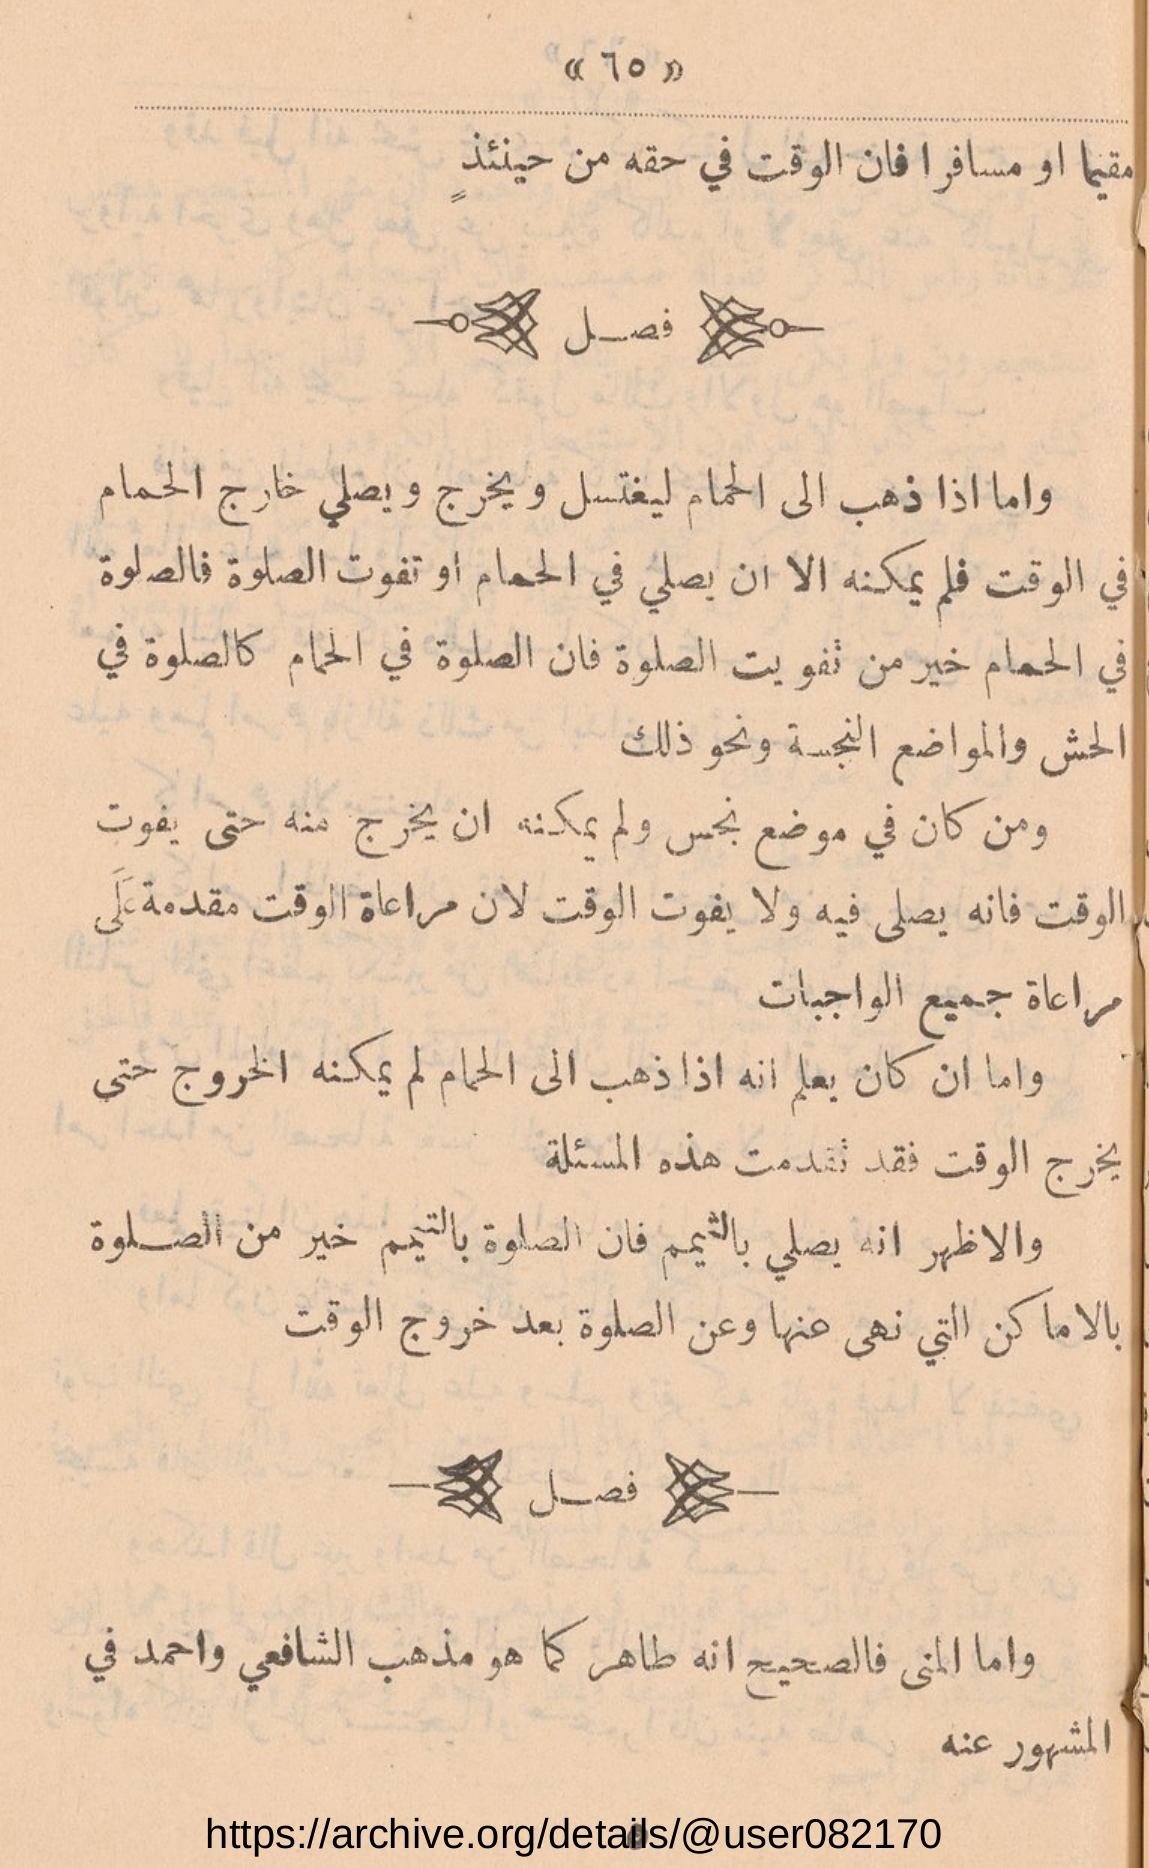 « ٦٥ »
مقيما او مسافرا فان الوقت في حقه من حينئذٍ
فصل
واما اذا ذهب الى الحمام ليغتسل ويخرج ويصلي خارج الحمام
في الوقت فلم يمكنه الا ان يصلي في الحمام او تفوت الصلوة فالصلوة
في الحمام خير من تفويت الصلوة فان الصلوة في الحمام كالصلوة في
الحش والمواضع النجسة ونحو ذلك
ومن كان في موضع نجس ولم يمكنه ان يخرج منه حتى يفوت
الوقت فانه يصلى فيه ولا يفوت الوقت لان مراعاة الوقت مقدمة عَلَى
مراعاة جميع الواجبات
واما ان كان يعلم انه اذا ذهب الى الحمام لم يمكنه الخروج حتى
يخرج الوقت فقد تقدمت هذه المسئلة
والاظهر انه يصلي بالتيمم فان الصلوة بالتيمم خير من الصلوة
بالاماكن التي نهى عنها وعن الصلوة بعد خروج الوقت
فصل
واما المنى فالصحيح انه طاهر كما هو مذهب الشافعي واحمد في
المشهور عنه
https://archive.org/details/@user082170